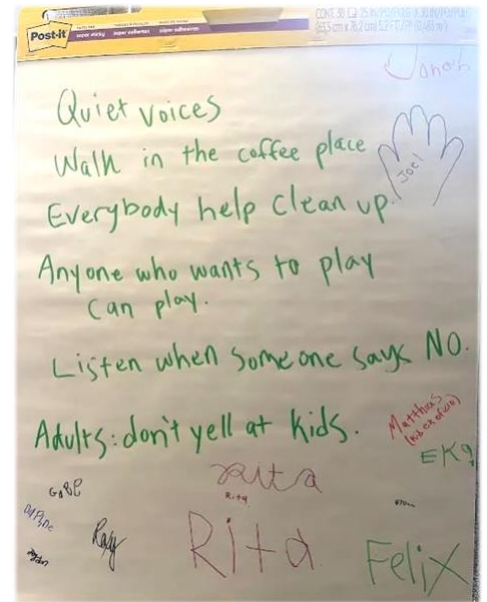 Post-it
super sticky
Jonah
Quiet voices
Walk in the coffee place
Joel
Everybody help clean up.
Anyone who wants to play
can play.
Listen when someone says NO.
Adults: don't yell at kids.
Matthias
EKG
Rita
Rita
GABE
DAPhNE
Rita
Felix